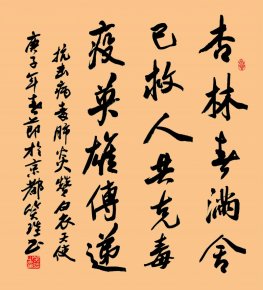 杏林春滿舍
己救人共克毒
疫英雄傳遞
抗击病毒肺炎赞白衣天使
庚子年春節於京都